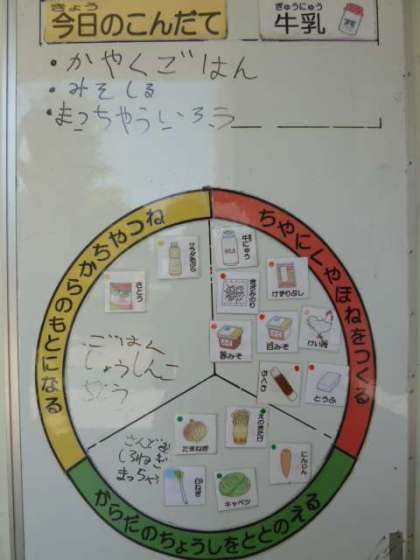 きょう
今日のこんだて
ぎゅうにゅう
牛乳
・かやくごはん
・みそしる
・まっちゃういろう
ちやにくやほねをつくる
ねつやちからのもとになる
からだのちょうしをととのえる
牛にゅう
けずりぶし
赤みそ
白みそ
けい肉
ちくわ
とうふ
さとう
ごはん
じょうしんこ
たまねぎ
えのきたけ
にんじん
キャベツ
白ねぎ
しろねぎ
まっちゃ